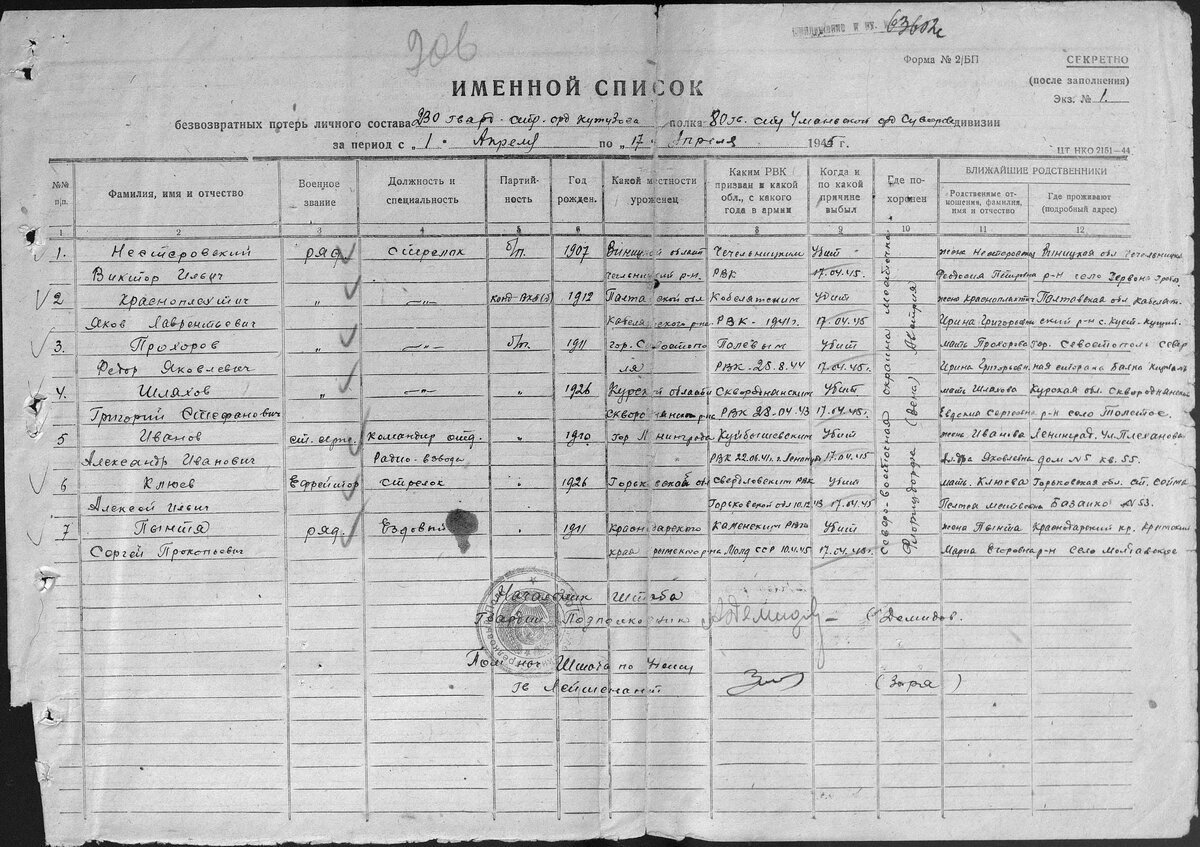 63602с
Форма № 2/БП
СЕКРЕТНО
(после заполнения)
Экз. № 1.
ИМЕННОЙ СПИСОК
безвозвратных потерь личного состава 230 гвард. стр. орд Кутузова полка 80 гв. стр Уманской орд Суворова дивизии
за период с „1." Апреля по „17" Апреля 1945 г.
ЦТ НКО 2151—44
№№ п/п. Фамилия, имя и отчество Военное звание Должность и специальность Партийность Год рожден. Какой местности уроженец Каким РВК призван и какой обл., с какого года в армии Когда и по какой причине выбыл Где похоронен БЛИЖАЙШИЕ РОДСТВЕННИКИ
Родственные отношения, фамилия, имя и отчество Где проживают (подробный адрес)
1 2 3 4 5 6 7 8 9 10 11 12
1. Нестаровский ряд. стрелок б/п. 1907 Виницкой област Чечельницким Убит жена Несторовск Виницкая обл Чечельницки
Виктор Ильич Чечельницкий р-н. РВК 17.04.45. Феодосия Петровна р-н село Червона
2 Красноплахтич „ —„— канд ВКП(б) 1912 Полта ской обл Кобелятским Убит жена Красноплахтич Полтавская обл. Кабелят.
Яков Лаврентьевич РВК - 1941г. 17.04.45 Ирина Григоровн ский р-н с.
3. Прохоров „ —„— б/п. 1911 гор. С Полевым Убит мать Прохорова гор. Севостополь Север
Федор Яковлевич ля РВК - 25.8.44 17.04.45г. Ирина Григорьвн ная сторона
4. Шлахов „ —„— „ 1926 Курской области Сквороднянским Убит мать Шлахова Курская обл. Сквороднянский
Григорий Стефанович РВК 28-04.43 17.04.45г. Евдокия Сергеевна р-н село Толстое.
5 Иванов ст. серж. Командир отд. „ 1910 гор Л нинграда Куйбышевским Убит жена Иванова Ленинград. Ул. Плеханова
Александр Иванович Радио-взвода „ РВК 22.06.41г. 17.04.45 Яковлевна дом N5 кв. 55.
6 Клюев Ефрейтор стрелок „ 1926 Горьк вской обл Свердловским РВК Убит мать. Клюева Горьковская обл. ст. Сейма
Алексей Ильич Горьковской обл 10.12.43 17.04.45 N 53.
7 Пынтя ряд. Ездовый „ 1911 Каменским РВК Убит жена Пынтя Краснодарский кр. Крымский
Сергей Прокопович края Молд ССР 10.4.45 17.04.45г. Мария Егоровна р-н село Молдавское
Северо-восточная окраина местечка
Флоридсдорф (Вена) Австрия
Начальник Штаба
Гвардии Подполковник АДемидов — (Демидов.
Пом нач. Штаба по учету
гв Лейтенант (Заря)